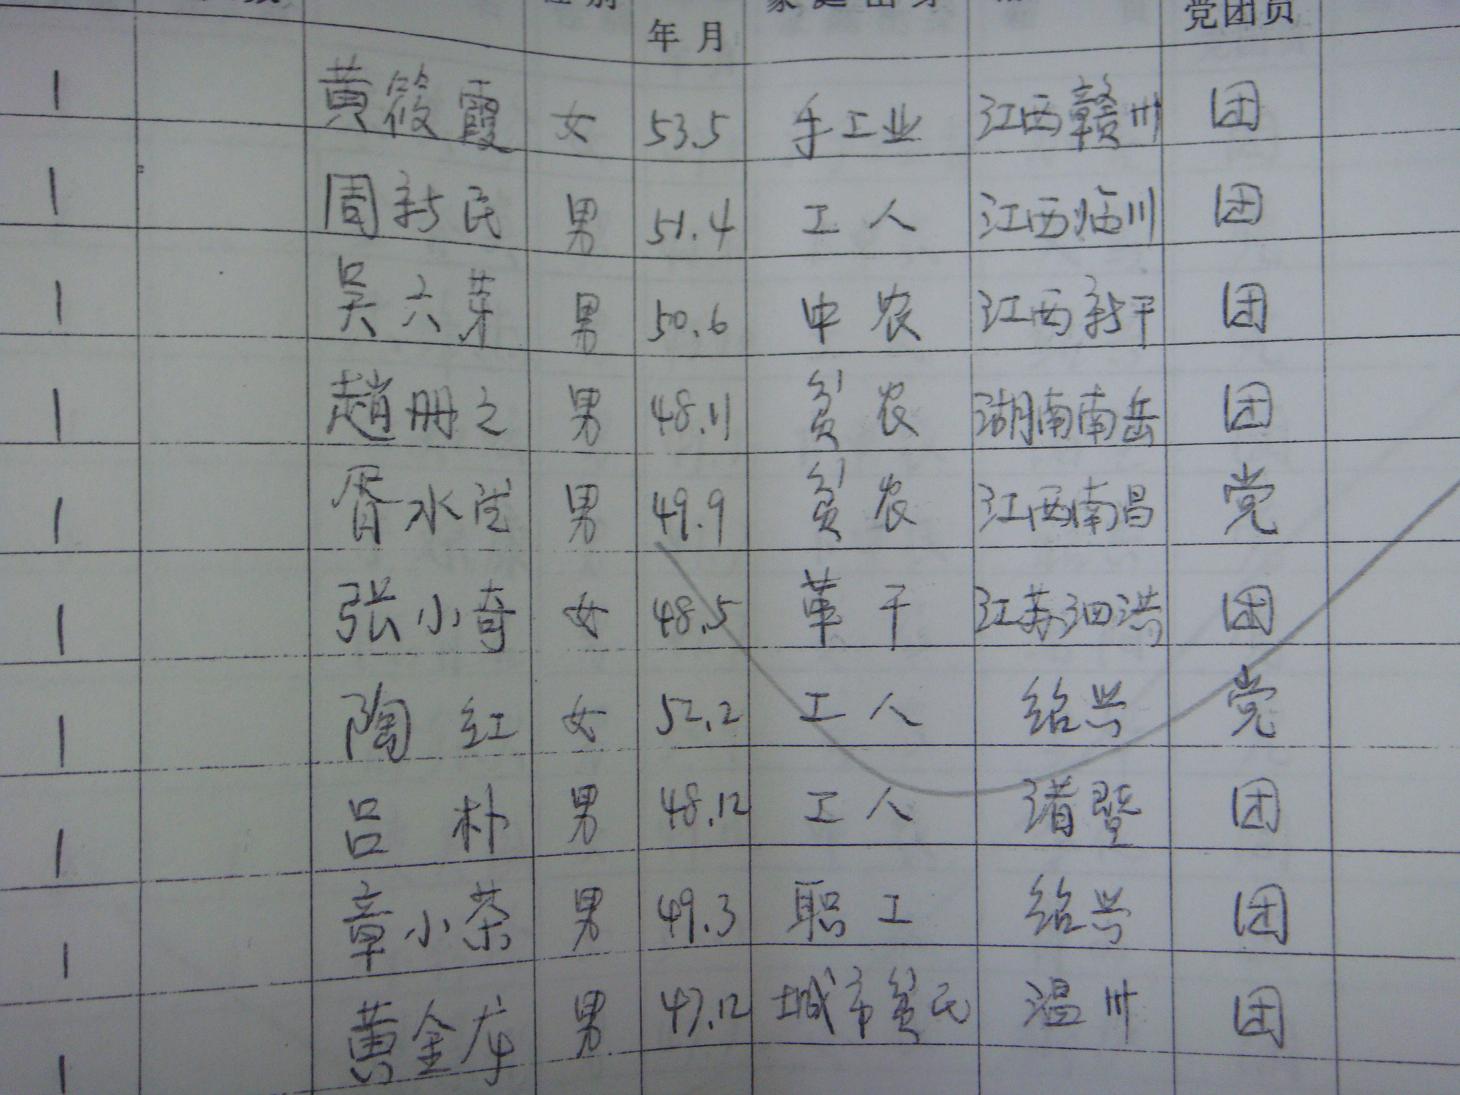 年月 党团员
1 黄筱霞 女 53.5 手工业 江西赣州 团
1 周新民 男 51.4 工人 江西临川 团
1 吴六芽 男 50.6 中农 江西新干 团
1 趙册之 男 48.11 贫农 湖南南岳 团
1 胥水 男 49.9 贫农 江西南昌 党
1 张小奇 女 48.5 革干 江苏泗洪 团
1 陶红 女 52.2 工人 绍兴 党
1 吕朴 男 48.12 工人 诸暨 团
1 章小荣 男 49.3 职工 绍兴 团
1 黄金库 男 47.12 城市贫民 温州 团